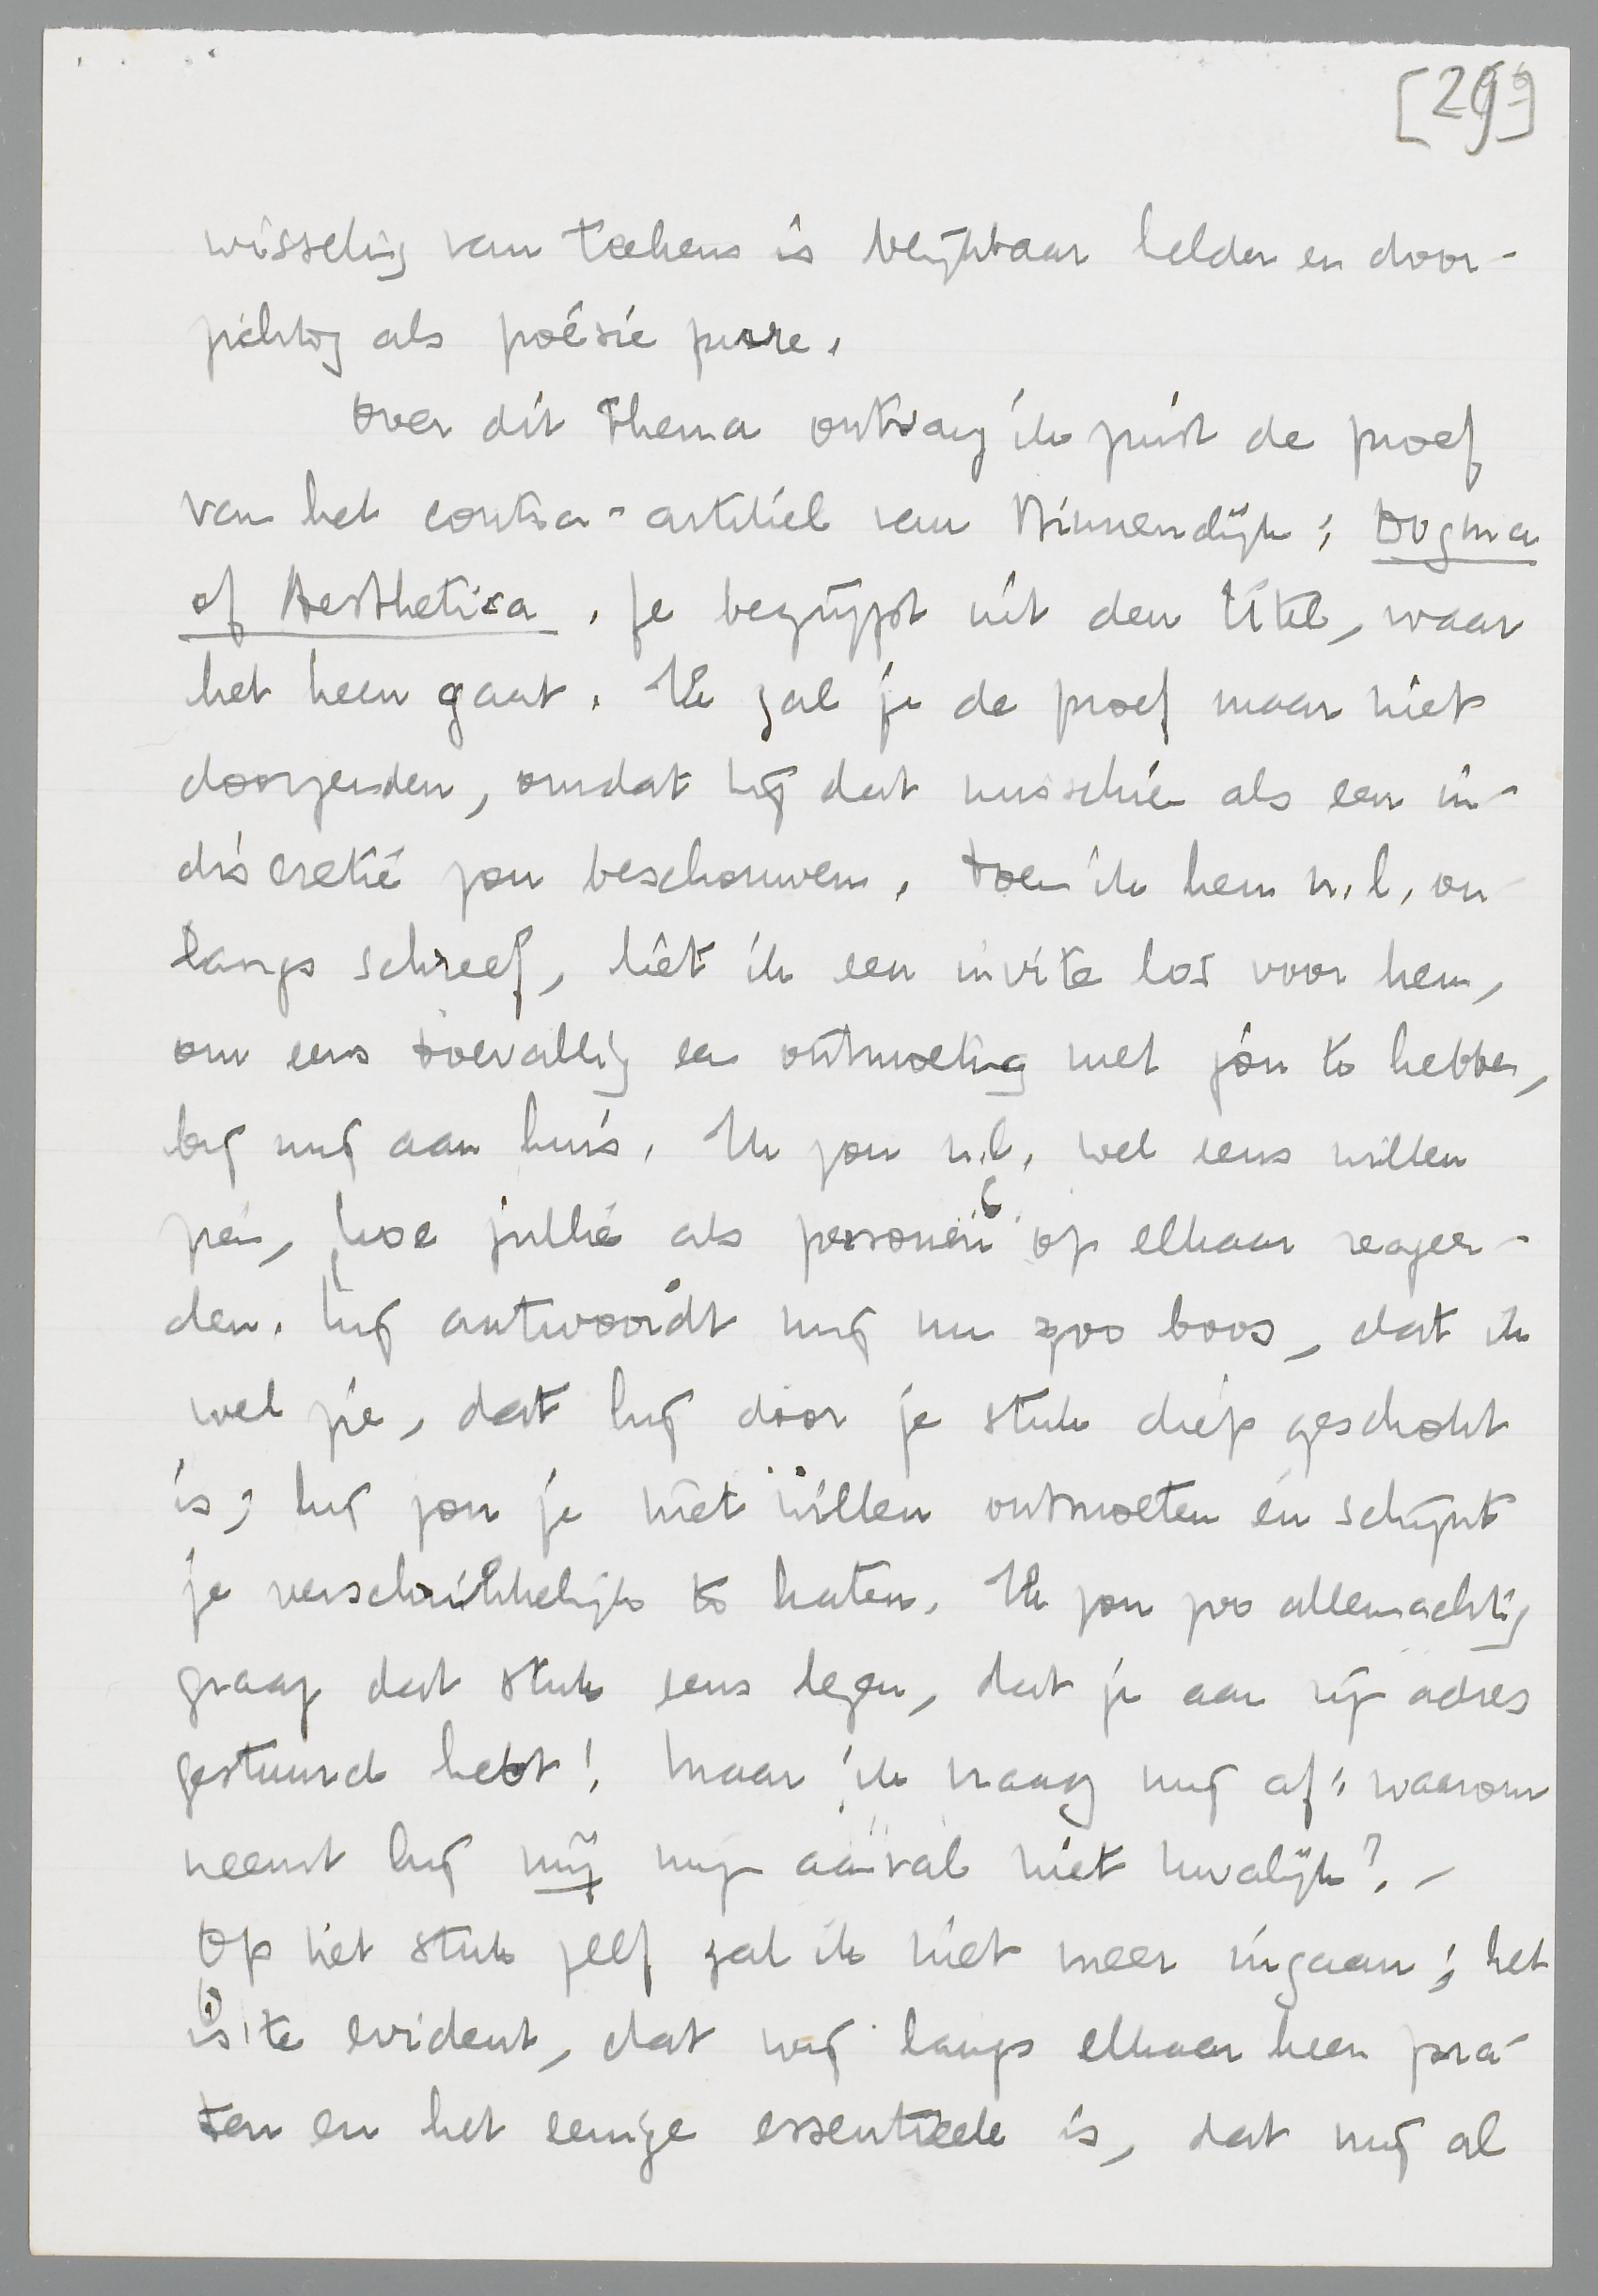 [299]
wisseling van teekens is blijkbaar helder en door-
zichtig als poésie pure.
Over dit thema ontvang ik juist de proef
van het contra-artikel van Binnendijk: Dogma
of Aesthetica. Je begrijpt uit den titel, waar
het heen gaat. Ik zal je de proef maar niet
doorzenden, omdat hij dat misschien als een in-
discretie zou beschouwen. Toen ik hem n.l. on-
langs schreef, liet ik een invite los voor hem,
om eens toevallig een ontmoeting met jou te hebben,
bij mij aan huis. Ik zou n.l. wel eens willen
zien, hoe jullie als personen op elkaar reageer-
den. Hij antwoordt mij nu zoo boos, dat ik
wel zie, dat hij door je stuk diep geschokt
is; hij zou je niet willen ontmoeten en schijnt
je verschrikkelijk te haten. Ik zou zoo allemachtig
graag dat stuk eens lezen, dat je aan zijn adres
gestuurd hebt! Maar ik vraag mij af: waarom
neemt hij mij mijn aanval niet kwalijk? -
Op het stuk zelf zal ik niet meer ingaan; het
is te evident, dat wij langs elkaar heen pra-
ten en het eenige essentieele is, dat mij al